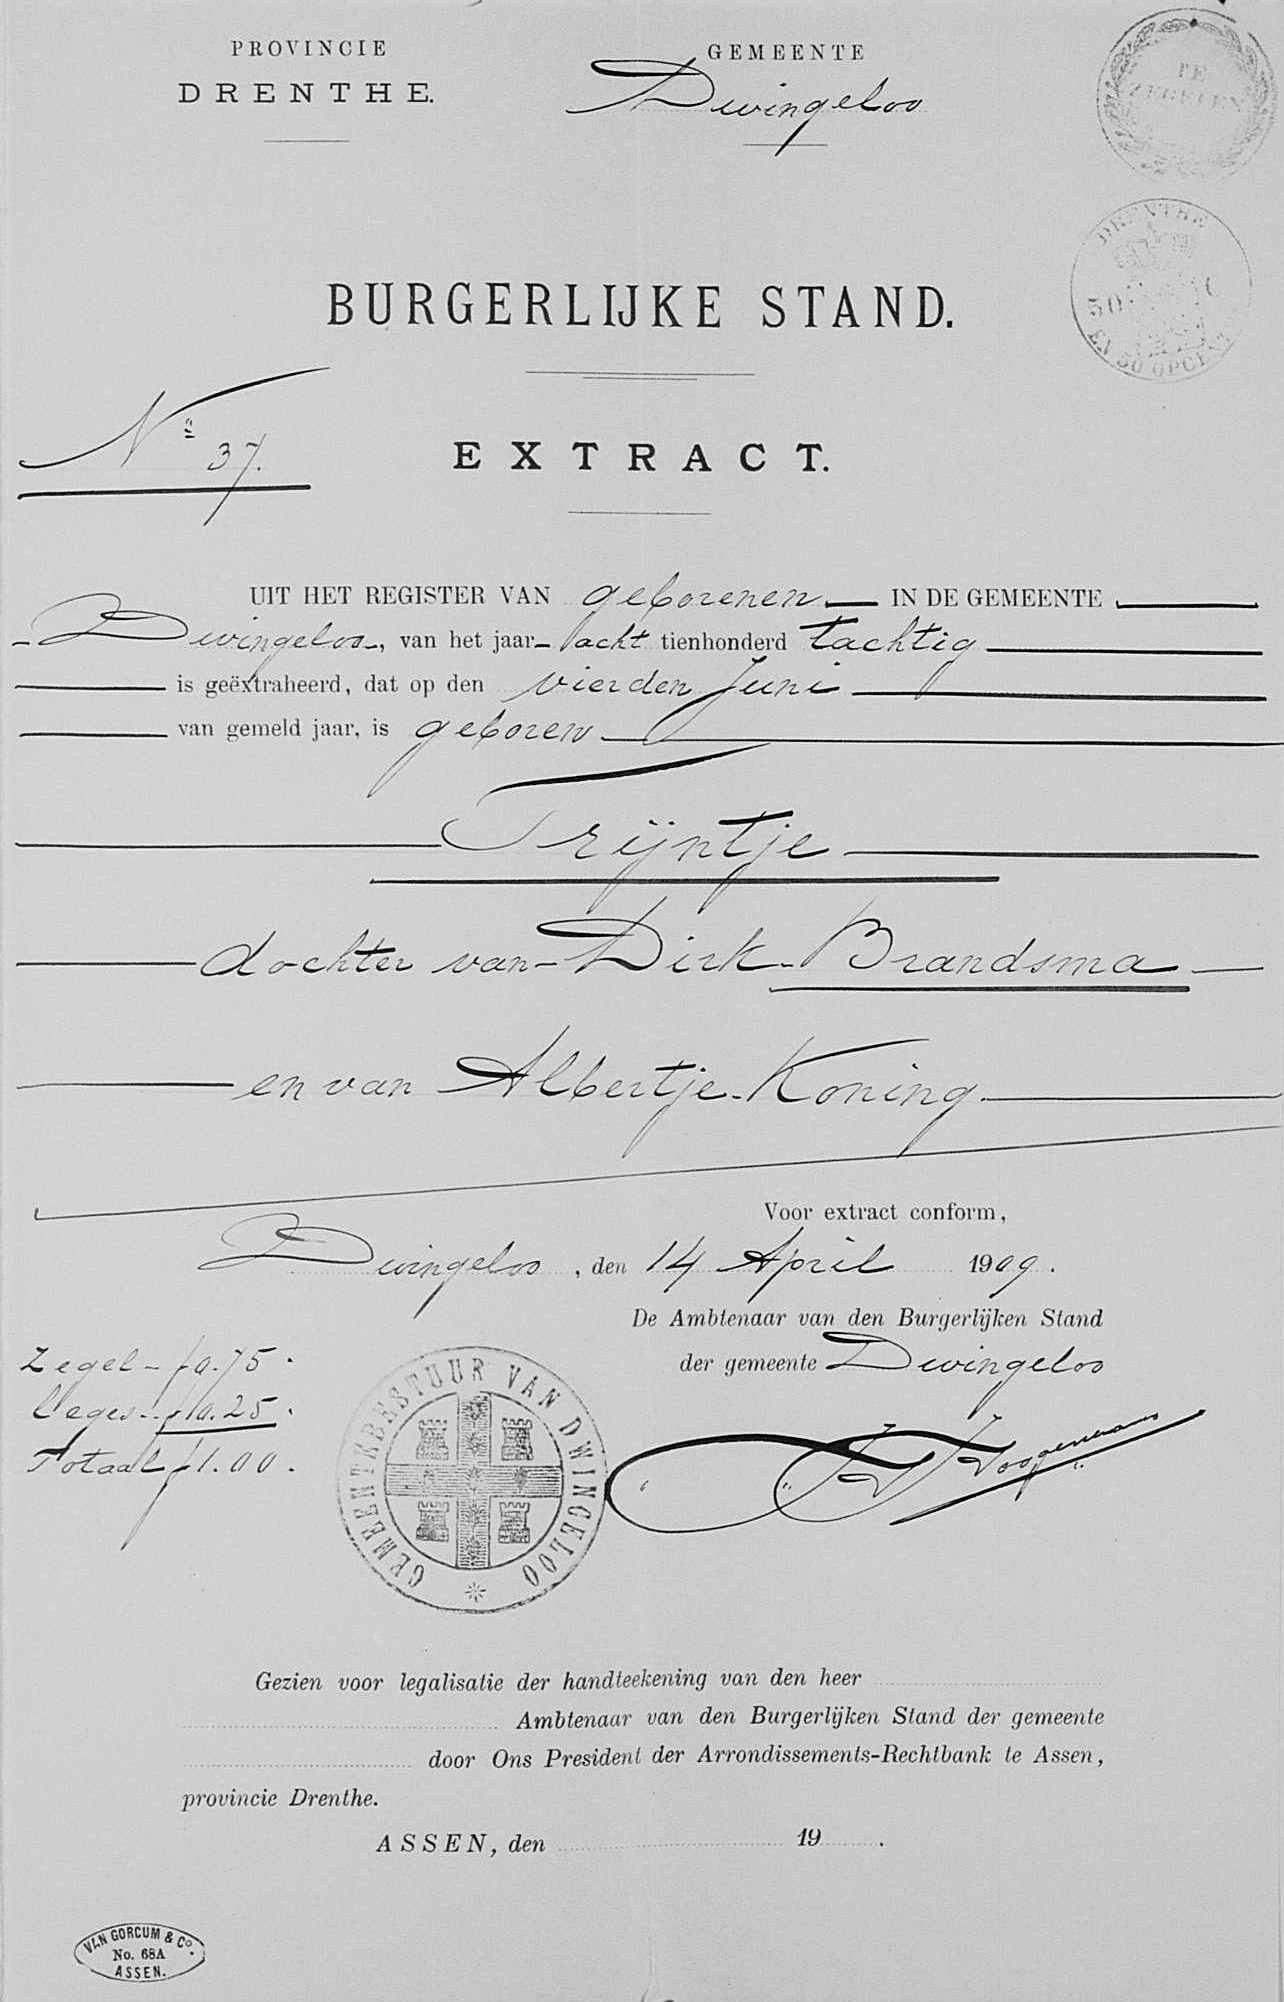 PROVINCIE
DRENTHE.
GEMEENTE
Dwingeloo
TE
ZEGELEN
DRENTHE
50
EN 50 OPCENT
BURGERLIJKE STAND.
No 37.
EXTRACT.
UIT HET REGISTER VAN geborenen IN DE GEMEENTE
Dwingeloo, van het jaar acht tienhonderd tachtig
is geëxtraheerd, dat op den vierden Juni
van gemeld jaar, is geboren
Trijntje
dochter van Dirk Brandsma
en van Albertje Koning
Voor extract conform,
Dwingeloo, den 14 April 1909.
De Ambtenaar van den Burgerlijken Stand
der gemeente Dwingeloo
Zegel - f 0.75.
Leges - f 0.25.
Totaal f 1.00.
GEMEENTEBESTUUR VAN DWINGELOO
Gezien voor legalisatie der handteekening van den heer
Ambtenaar van den Burgerlijken Stand der gemeente
door Ons President der Arrondissements-Rechtbank te Assen,
provincie Drenthe.
ASSEN, den 19 .
VAN GORCUM & Co.
No. 68A
ASSEN.